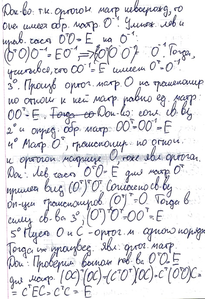 Док-во: т.к. ортогон. матр невырожд, то
она имеет обр. матр O⁻¹. Умнож. лев и
прав. част O*O=E на O⁻¹
(O*O)O⁻¹=EO⁻¹ O⁻¹. Тогда,
учитывая, что OO⁻¹=E имеем O*=O⁻¹
3° Произв ортог. матр. O на транспонир
по отнош к ней матр равно ед. матр
OO*=E. Док-во: согл. св-ву
2° и опред. обр. матр OO*=OO⁻¹=E
4° Матр O*, транспонир по отнош.
к ортогон матрице O, также явл ортогон.
Док: Лев часть O*O=E для матр O*
примет вид (O*)*O*. Согласно св-ву
оп-ции транспонир. (O*)*=O. Тогда в
силу св-ва 3°, (O*)*O*=OO*=E
5° Пусть O и C - ортог. м одного порядка
Тогда их произвед. явл. ортог. матр.
Док: Проверим выполн рав-ва O*O=E
для матр (OC)*(OC)=(C*O*)(OC)=C*(O*O)C=
=C*EC=C*C=E